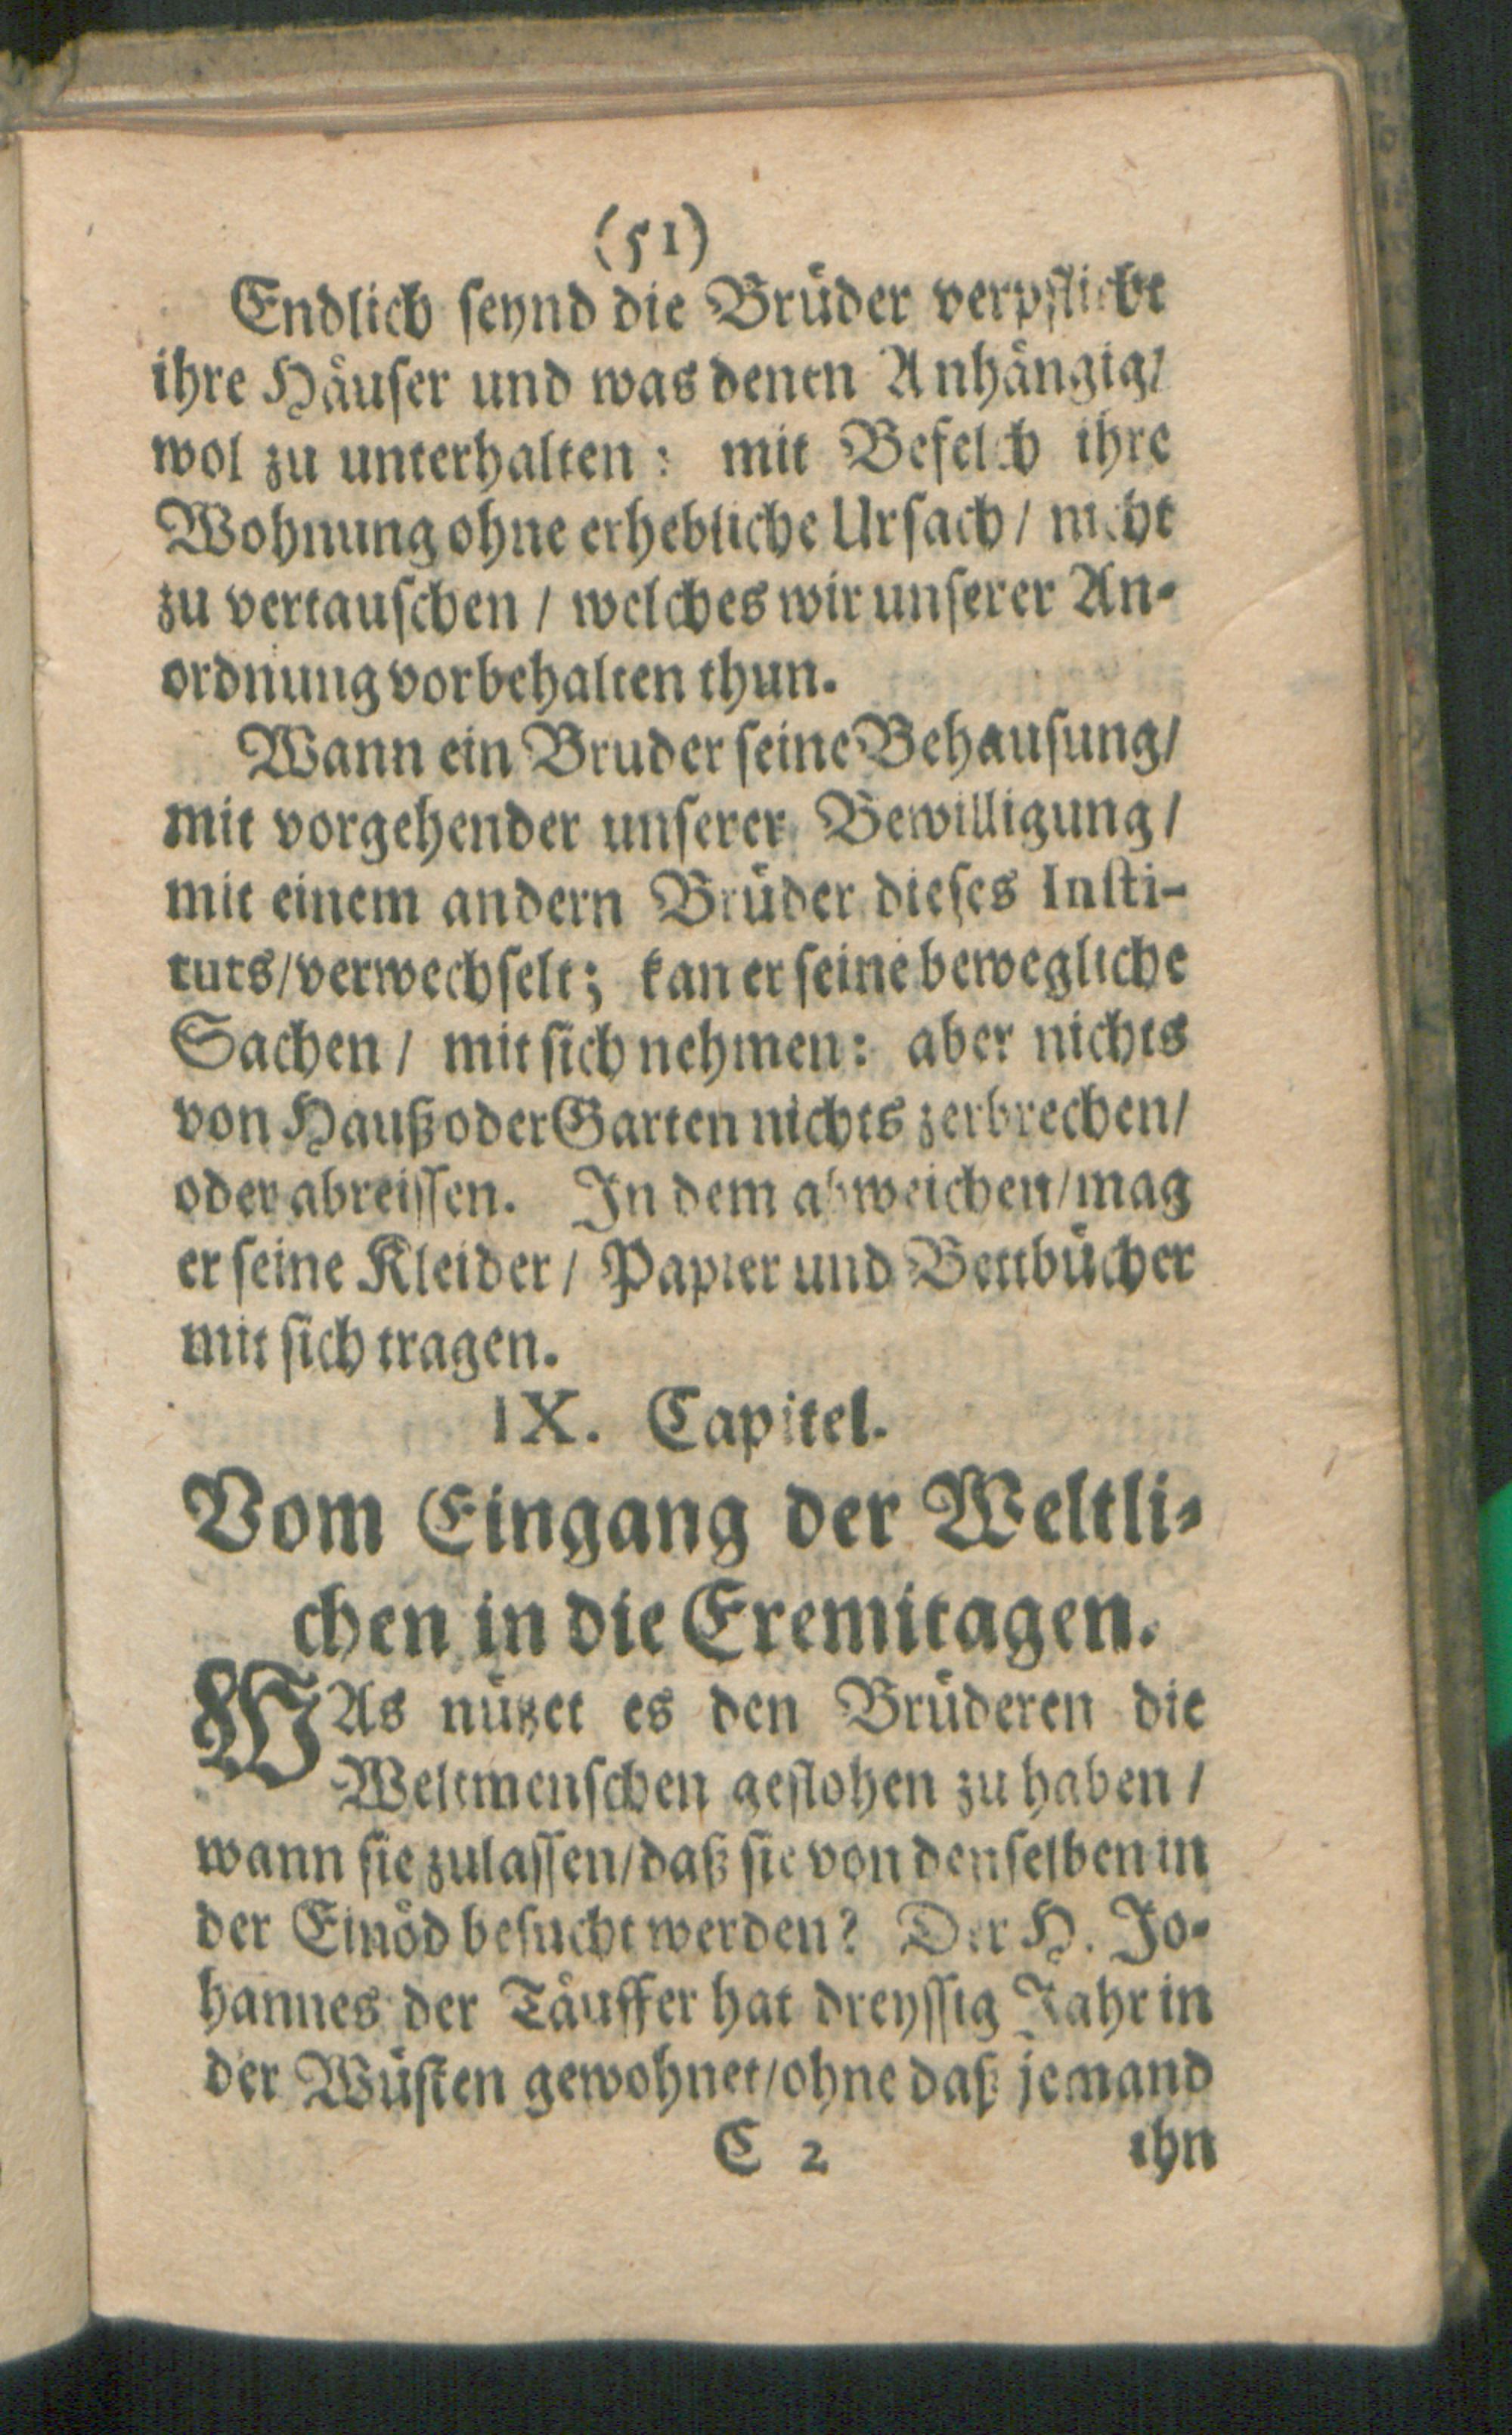 (51)
Endlich seynd die Brüder verpflicht
ihre Häuser und was denen Anhängig/
wol zu unterhalten: mit Befelch ihre
Wohnung ohne erhebliche Ursach / nicht
zu vertauschen / welches wir unserer An-
ordnung vorbehalten thun.
Wann ein Bruder seine Behausung/
mit vorgehender unserer Bewilligung /
mit einem andern Brüder dieses Insti-
tuts/verwechselt; kan er seine bewegliche
Sachen / mit sich nehmen: aber nichts
von Hauß oder Garten nichts zerbrechen/
oder abreissen. In dem abweichen/mag
er seine Kleider / Papier und Bettbücher
mit sich tragen.
IX. Capitel.
Vom Eingang der Weltli-
chen in die Eremitagen.
WAs nützet es den Brüderen die
Weltmenschen geflohen zu haben /
wann sie zulassen/daß sie von denselben in
der Einöd besucht werden? Der H. Jo-
hannes der Täuffer hat dreyssig Jahr in
der Wüsten gewohnet/ohne daß jemand
C 2 ihn